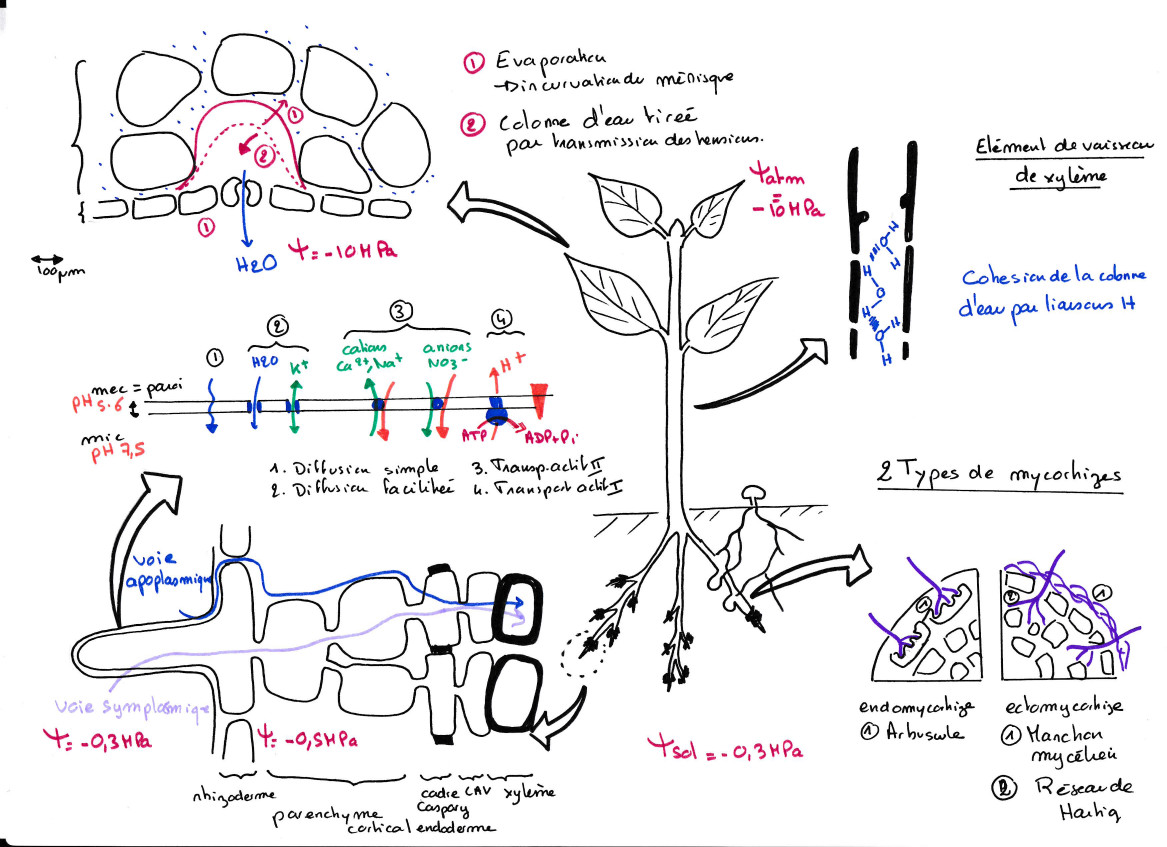 ① Evaporation
→ Dincurvation du ménisque
② Colonne d'eau tireé
par transmission des tensions.
①
②
①
100µm
H2O
Ψ = -10MPa
Ψatm
=
-10MPa
Elément de vaisseau
de xylème
H
O
H
H
O
H
O
H
H
Cohesion de la colonne
d'eau par liaisons H
①
②
③
④
H2O
K+
cations
Ca2+, Na+
anions
NO3-
H+
mec = paroi
pH 5.6
mic
pH 7,5
ATP
ADP+Pi
1. Diffusion simple
2. Diffusion facilitéé
3. Transp. actif II
4. Transport actif I
2 Types de mycorhizes
voie
apoplasmique
voie symplasmique
Ψ = -0,3MPa
Ψ = -0,5MPa
Ψsol = -0,3MPa
rhizoderme
parenchyme
cortical
cadre
Caspary
endoderme
CAV
xylème
①
②
①
endomycorhize
① Arbuscule
ectomycorhize
① Manchon
mycélien
② Réseau de
Hartig